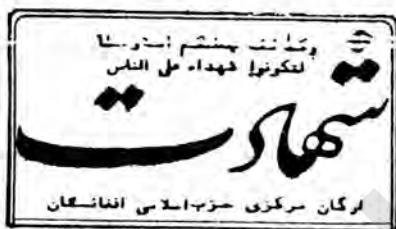 وكذالك جعلنٰكم امة وسطا
لتكونوا شهداء على الناس
شهادت
ارگان مرکزی حزب اسلامی افغانستان